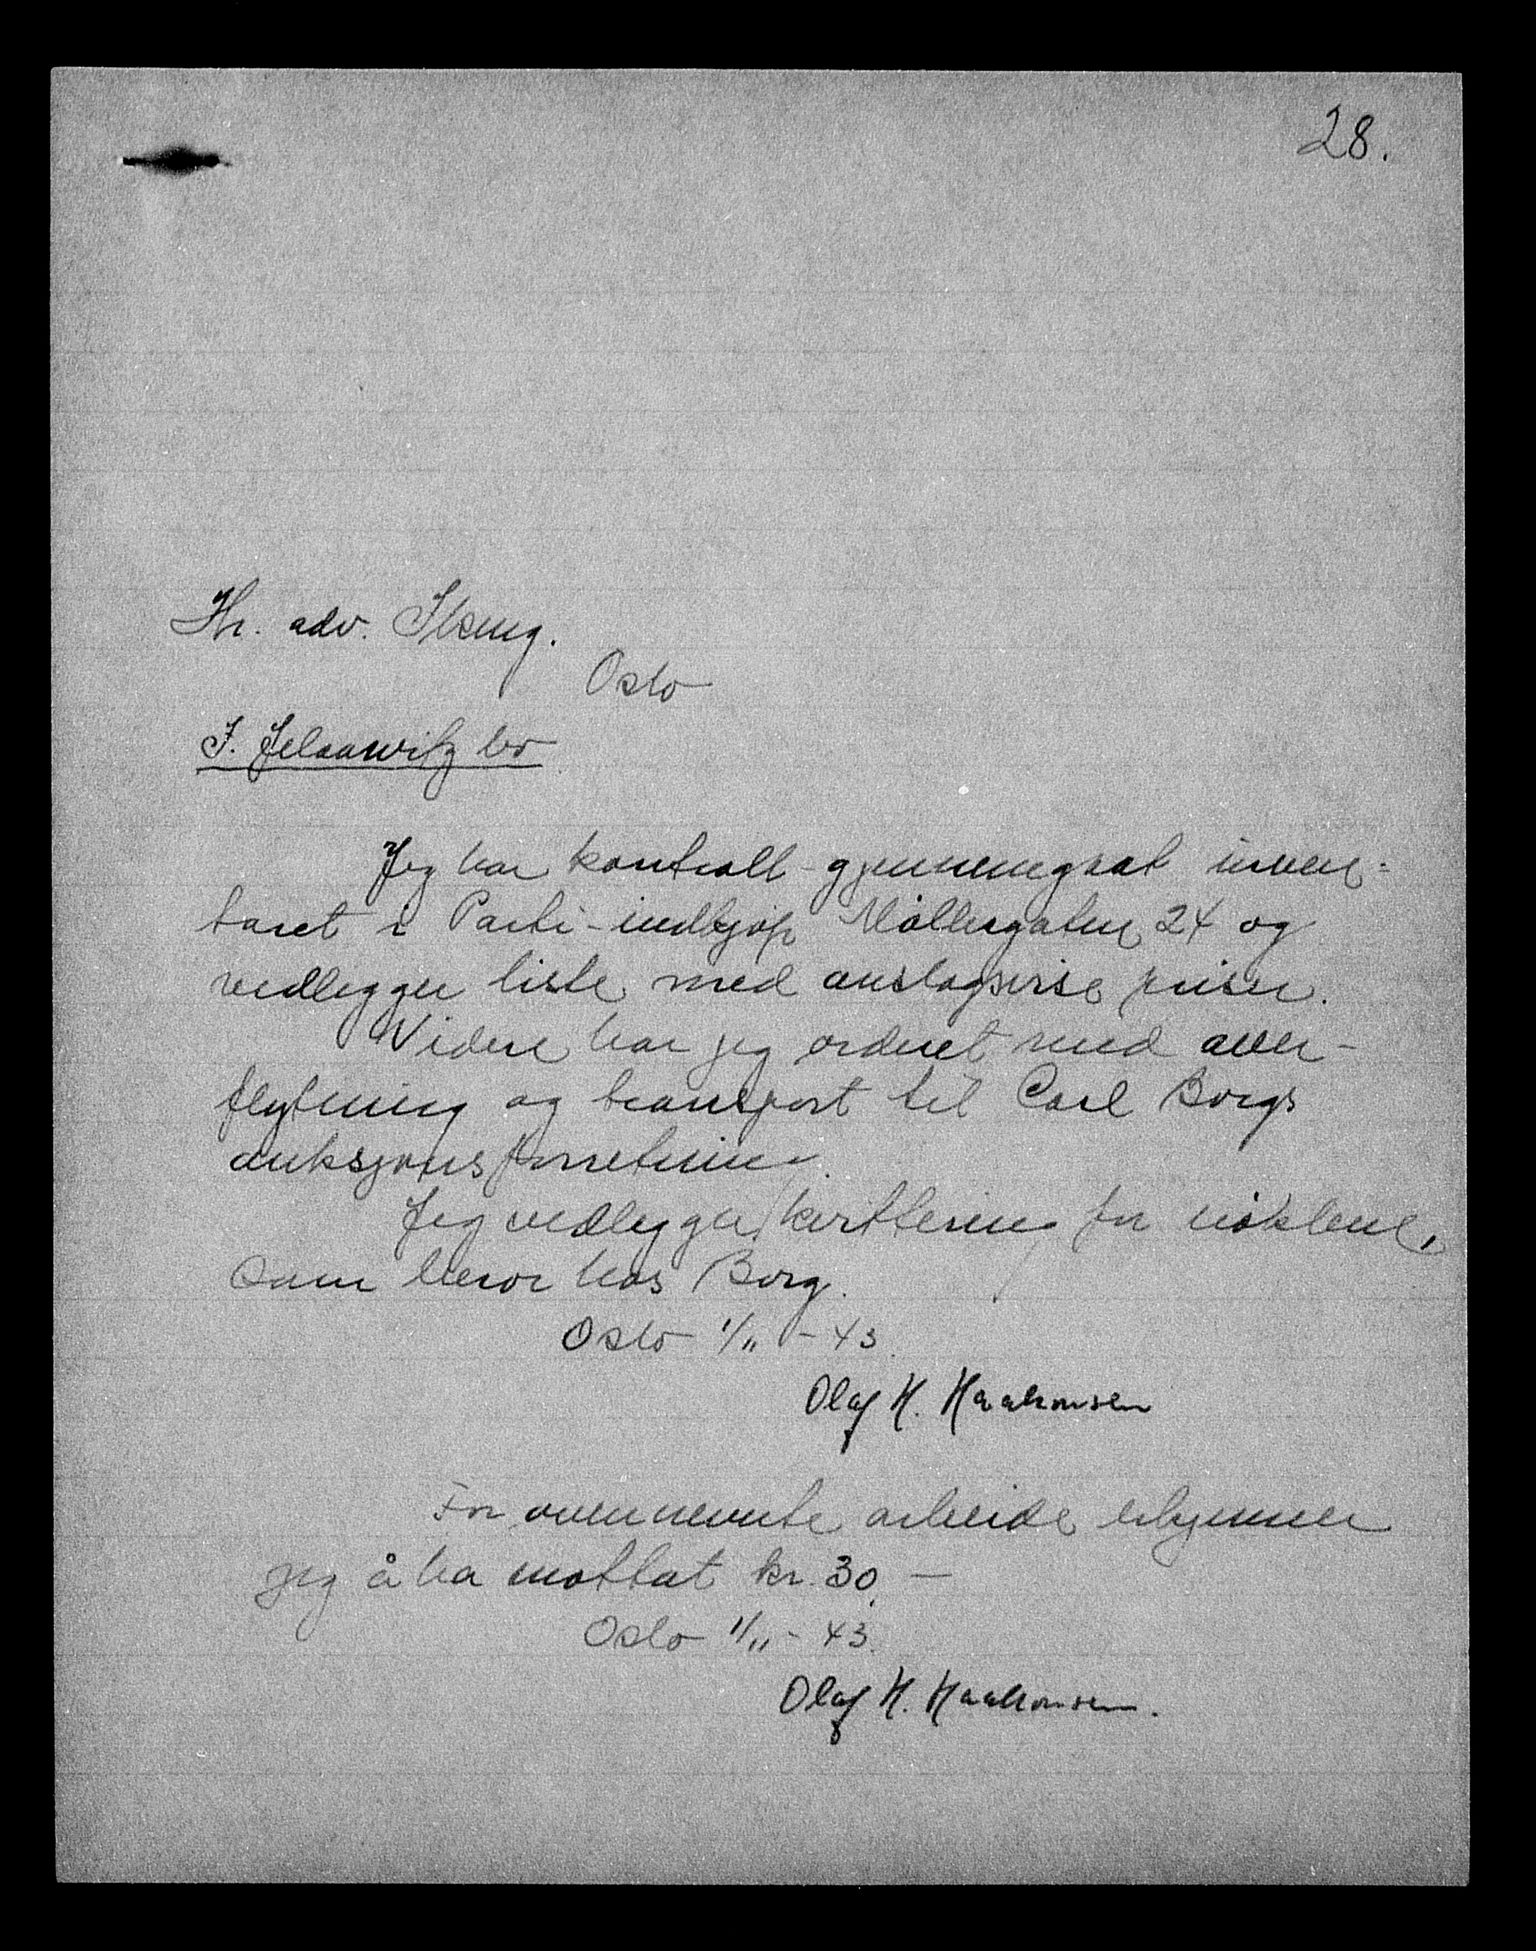 28.
Hr. adv. 
Oslo
I. Jelaawitz bo
Jeg har kontroll-gjennemgaat inven-
taret i Parti-indkjøp Møllergaten 24 og
vedlegger liste med anslagsvise priser.
Videre har jeg ordnet med over-
flytning og transport til Carl Borgs
auksjonsforretning.
Jeg vedlegger kvittering for nøklene,
som beror hos Borg.
Oslo 1/11 - 43.
Olaf H. Haakonsen
For ovennevnte arbeide erkjenner
jeg å ha mottat kr. 30.—
Oslo 1/11 - 43.
Olaf H. Haakonsen.